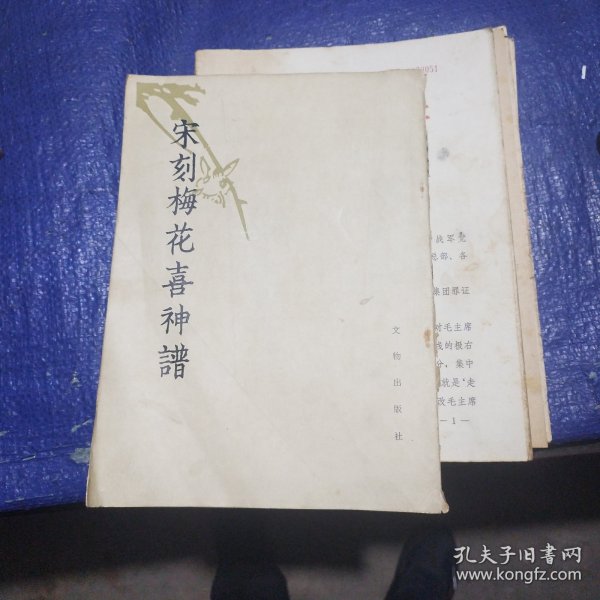 宋刻梅花喜神譜
文物出版社
战军党
总部、各
集团罪证
对毛主席
线的极右
分，集中
就是‘走
改毛主席
—1—
孔夫子旧书网
www.kongfz.com